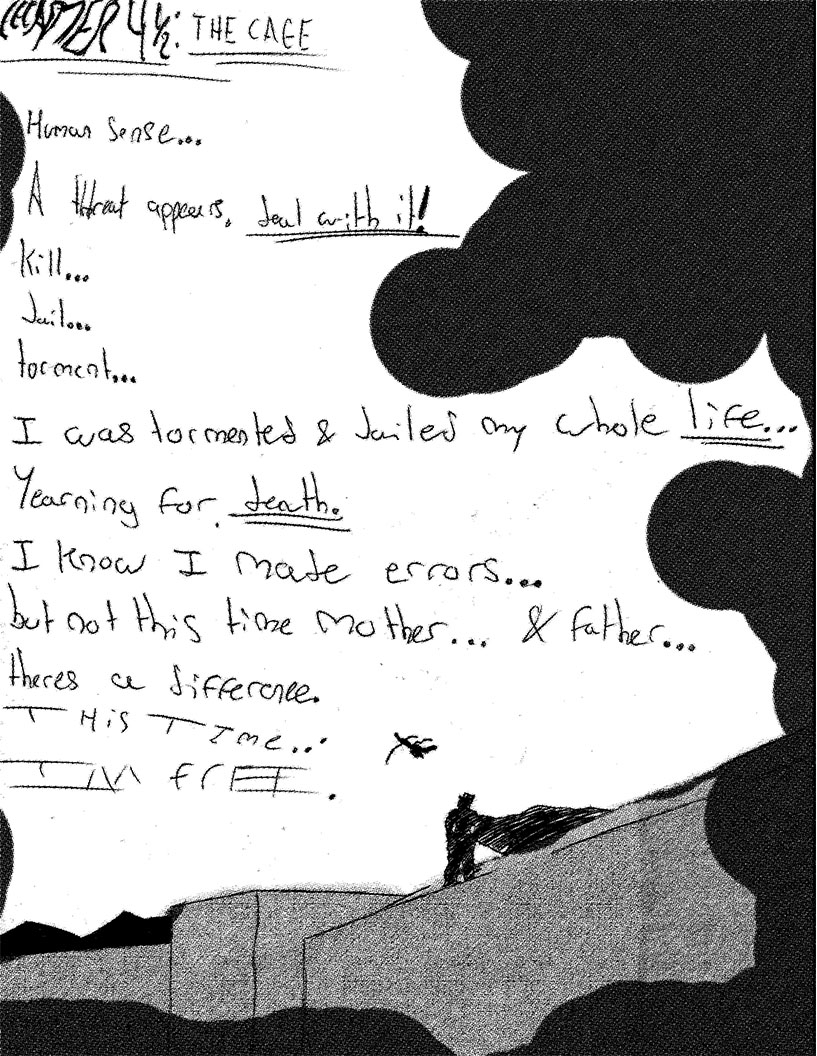 CHAPTER 4 1/2: THE CAGE
Human Sense...
A threat appears, deal with it!
Kill...
Jail...
torment...
I was tormented & Jailed my whole life...
Yearning for death.
I know I made errors...
but not this time Mother... & Father...
theres a difference.
THIS TIME...
IM FREE.